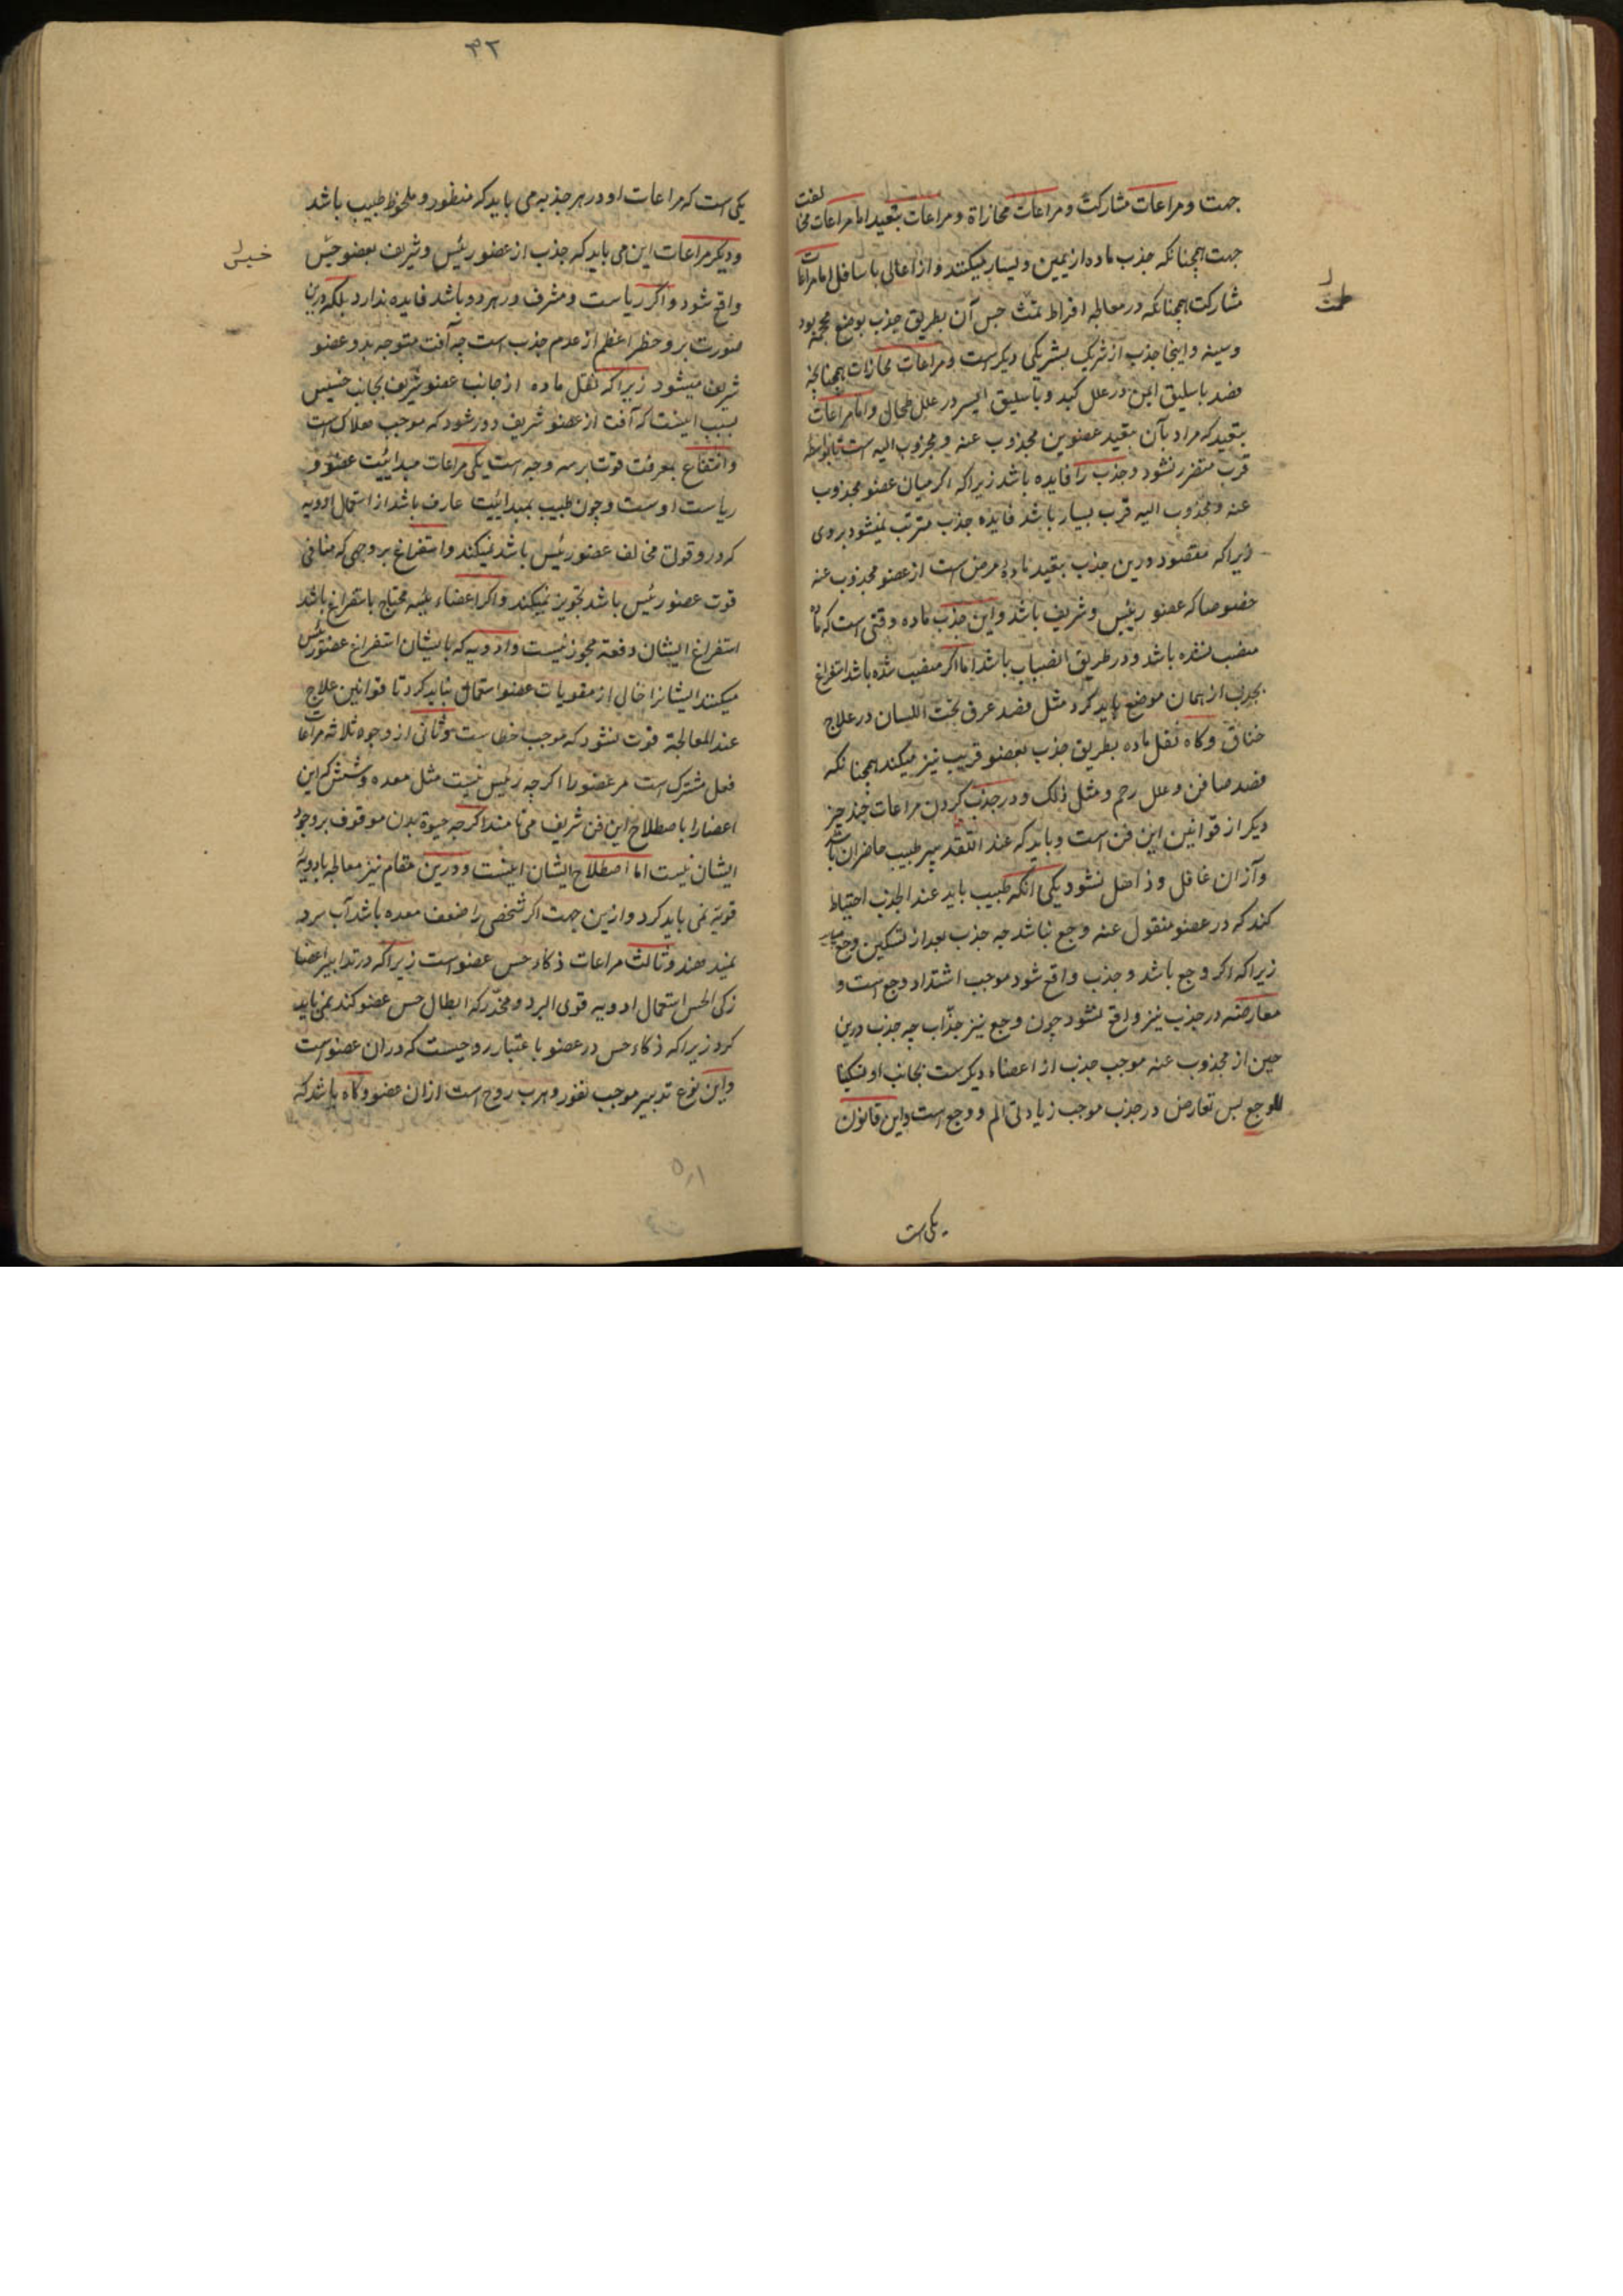 جهت و مراعات مشارکت و مراعات محازاة و مراعات بتعید اما مراعات مخالفت
جهت همچنانکه جذب ماده از یمین و یسار میکنند و از اعالی باسافل اما مراعات
مشارکت همچنانکه در معالجه افراط طمث حبس آن بطریق جذب بوضع محجمه بود
و سینه و اینجا جذب از شریک بشریکی دیکرست و مراعات محازات همچنانچه
فصد باسلیق ایمن در علل کبد و باسلیق ایسر در علل طحال و اما مراعات
بتعید که مراد بآن بتعید عضوین مجذوب عنه و مجذوب الیه است تا بواسطه
قرب متضرر نشود و جذب را فایده باشد زیرا که اکر میان عضو مجذوب
عنه و مجذوب الیه قرب بسیار باشد فایده جذب مترتب نمیشود بروی
زیرا که مقصود درین جذب بتعید ماده مرض است از عضو مجذوب عنه
خصوصا که عضو رئیس و شریف باشد و این جذب ماده وقتی است که ماده
منصب نشده باشد و در طریق انصباب باشد اما اکر منصب شده باشد استفراغ
بجذب از همان موضع باید کرد مثل فصد عرق تحت اللسان در علاج
خناق و کاه نقل ماده بطریق جذب بعضو قریب نیز میکند همچنانکه
فصد صافن و علل رحم و مثل ذلک و در جذب کردن مراعات چند چیز
دیکر از قوانین این فن است و باید که عند التقدیر طبیب حاضر آن باشد
و از آن غافل و ذاهل نشود یکی آنکه طبیب باید عند الجذب احتیاط
کند که در عضو منقول عنه وجع نباشد چه جذب بعد از تسکین وجع میباید
زیرا که اکر وجع باشد و جذب واقع شود موجب اشتداد وجع است و
معارضه در جذب نیز واقع نشود چون وجع نیز جذّاب چه جذب درین
حین از مجذوب عنه موجب جذب از اعضاء دیکرست بجانب او تسکینا
للوجع بس تعارض در جذب موجب زیادتی الم و وجع است و این قانون
یکی است
طمث
۴۲
یکی است که مراعات او در هر جذبه می باید که منظور و ملحوظ طبیب باشد
و دیکر مراعات این می باید که جذب از عضو رئیس و شریف بعضو خسیس
واقع شود و اکر ریاست و شرف در هر دو باشد فایده ندارد بلکه درین
صورت بر و خطر اعظم از عدم جذب است چه آفت متوجه بدو عضو
شریف میشود زیرا که نقل ماده از جانب عضو شریف بجانب خسیس
بسبب اینست که آفت از عضو شریف دور شود که موجب هلاک است
و انتفاع بمعرفت قوت بر سه وجه است یکی مراعات مبدائیت عضو و
ریاست اوست و چون طبیب بمبدائیت عارف باشد از استعمال ادویه
که در و قوت مخالف عضو رئیس باشد نمیکند و استفراغ بر وجهی که منافی
قوت عضو رئیس باشد تجویز نمیکند و اکر اعضاء رئیسه محتاج باستفراغ باشد
استفراغ ایشان دفعه مجوز نیست و ادویه که بایشان استفراغ عضو رئیس
میکنند ایشانرا خالی از مقویات عضو استعمال نباید کرد تا قوانین علاج
عند المعالجة فوت نشود که موجب خطاست و ثانی از وجوه ثلاثه مراعات
فعل مشترک است مر عضو را اکر چه رئیس نیست مثل معده و شش که این
اعضا را باصطلاح این فن شریف می نامند اکر چه حیوة بدن موقوف بر وجود
ایشان نیست اما اصطلاح ایشان اینست و درین مقام نیز معالجه بادویه
قویة نمی باید کرد و ازین جهت اکر شخصی را ضعف معده باشد آب سرد
نمیدهند و ثالث مراعات ذکاء حس عضو است زیرا که در تدابیر اعضا
زکی الحس استعمال ادویه قوی البرد و مخدّر که ابطال حس عضو کند نمی باید
کرد زیرا که ذکاء حس در عضو باعتبار روحیست که در آن عضو است
و این نوع تدبیر موجب نفور و هرب روح است از آن عضو و کاه باشد که
خسیس